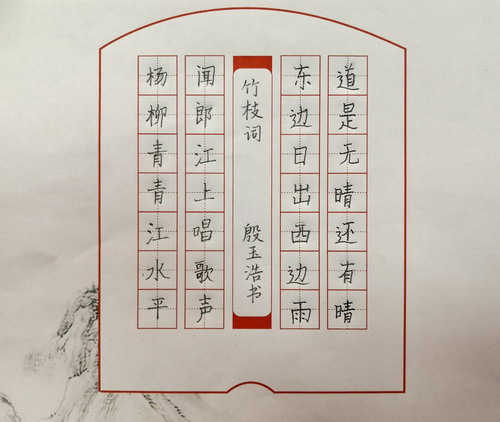 杨柳青青江水平
闻郎江上唱歌声
竹枝词 殷玉浩书
东边日出西边雨
道是无晴还有晴